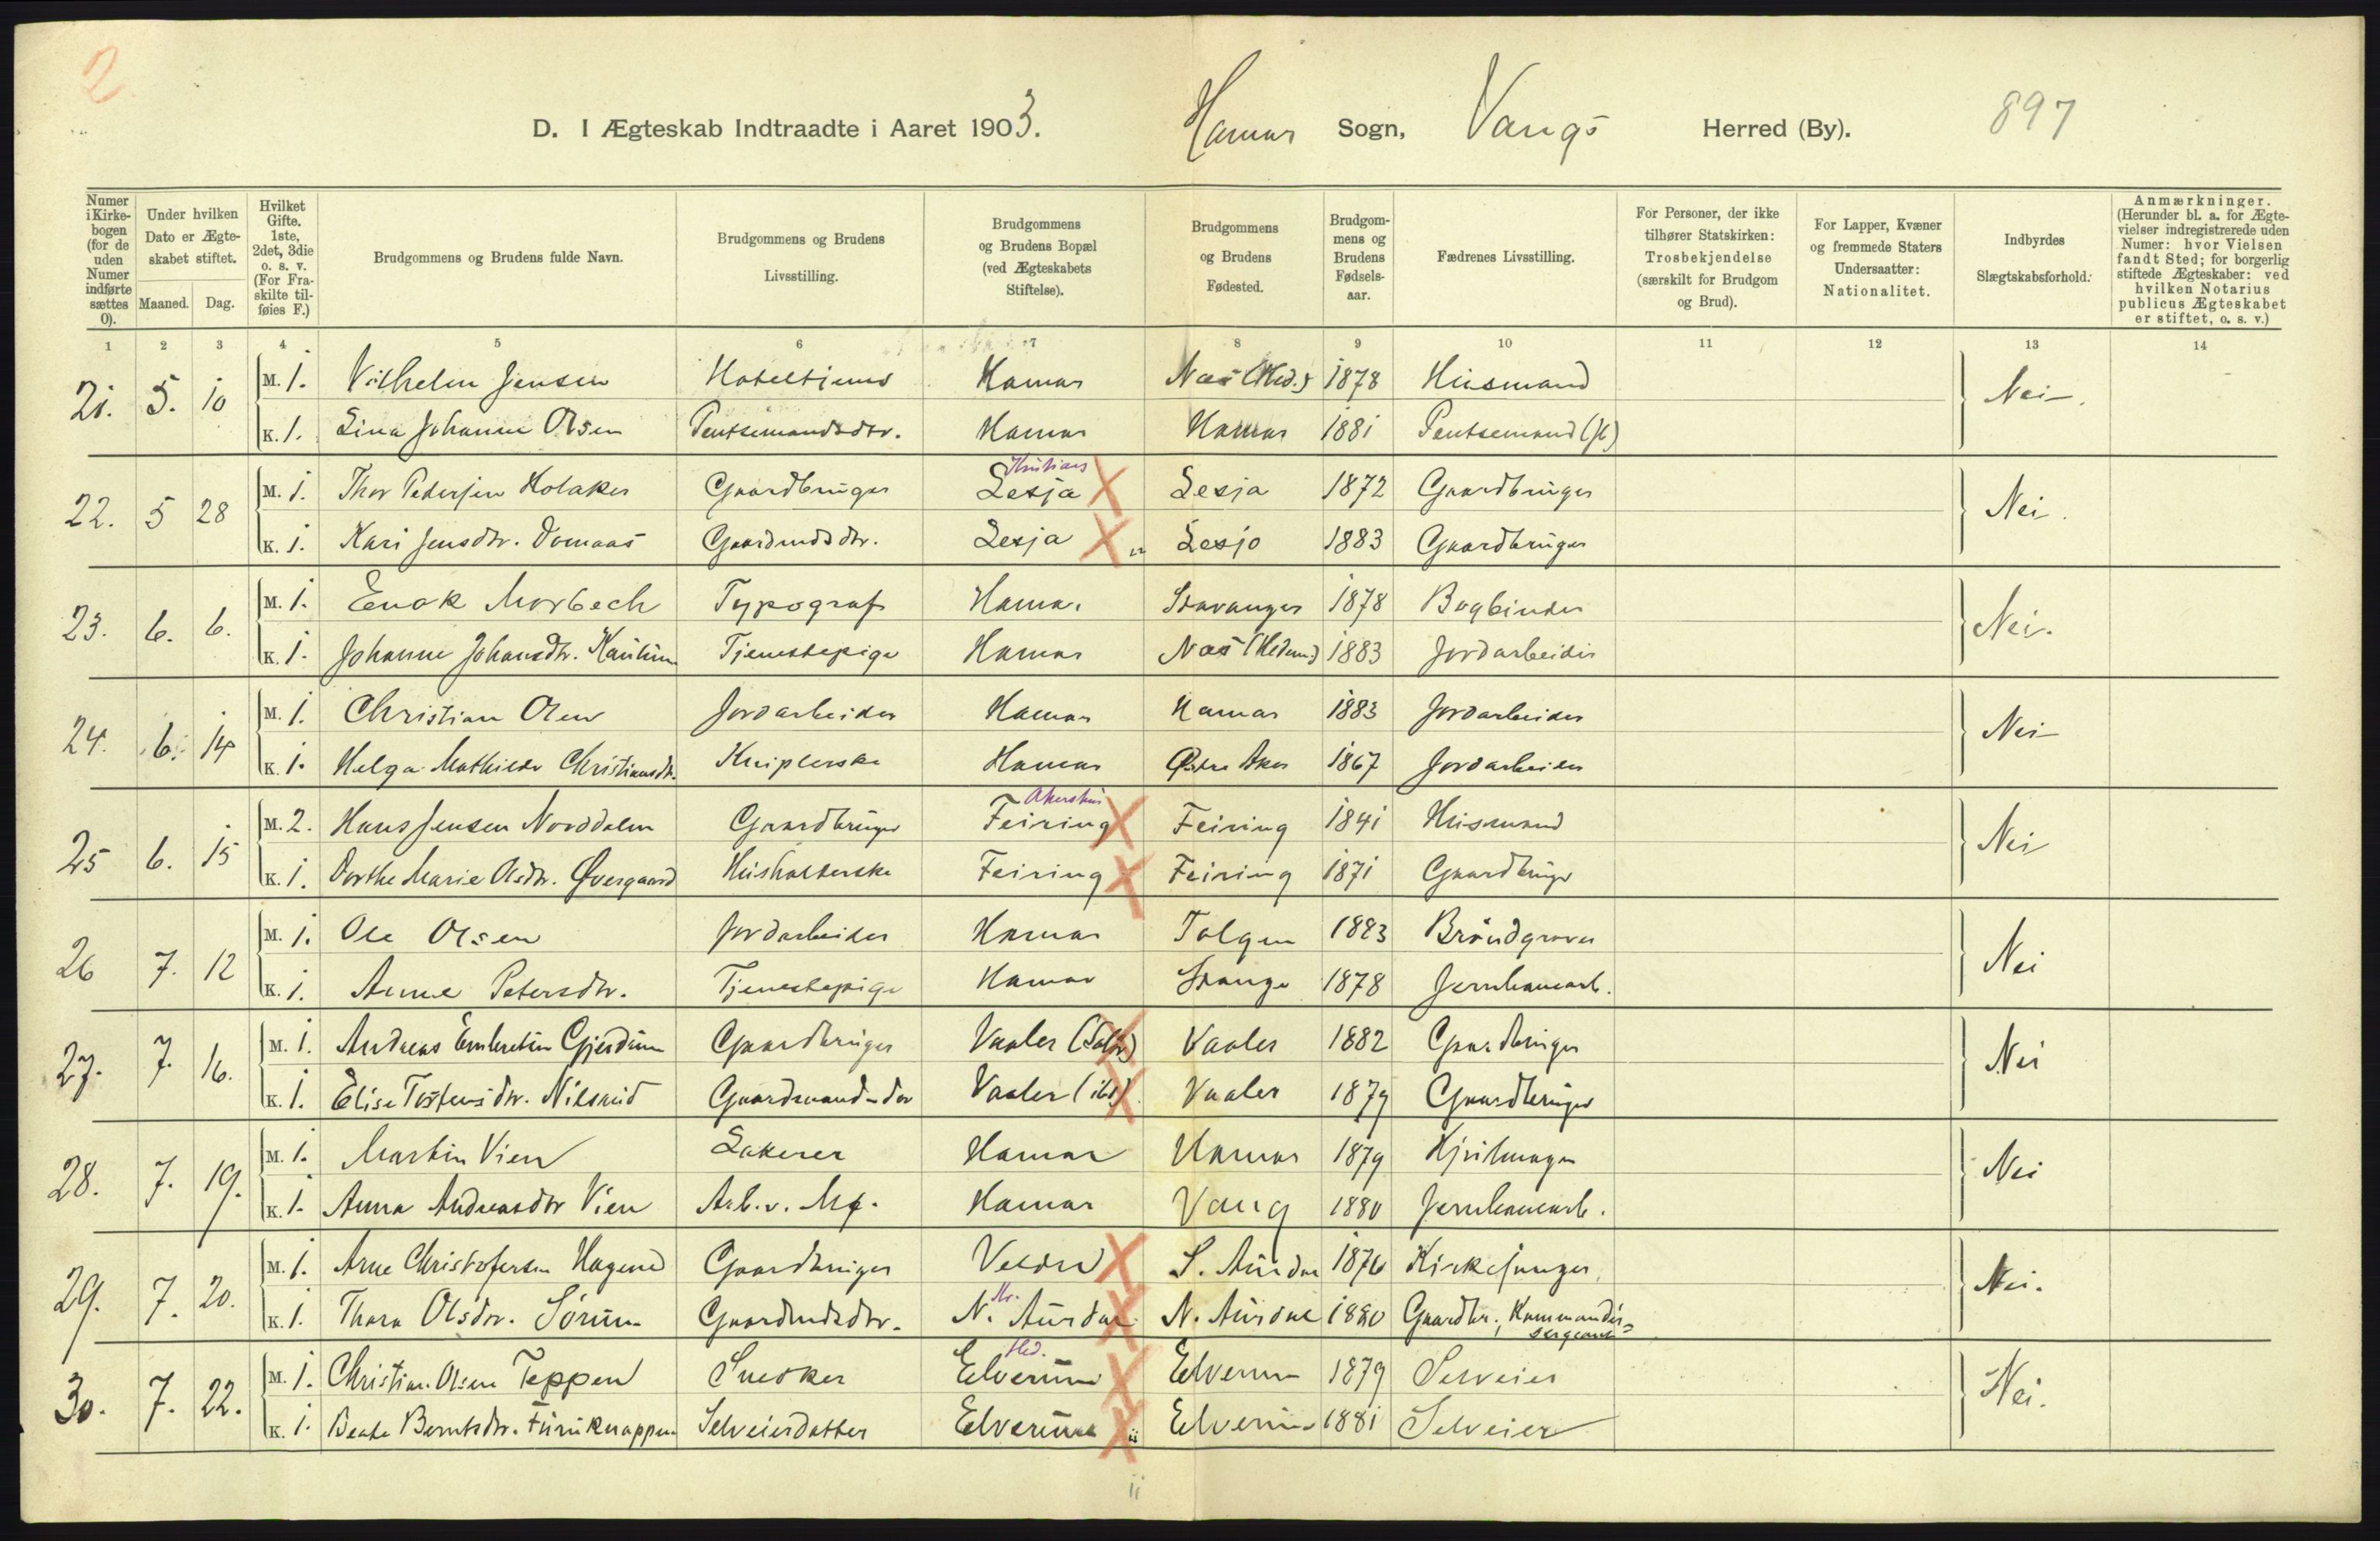 2
D. I Ægteskab Indtraadte i Aaret 1903. Hamar Sogn, Vangs Herred (By). 897
Numer i Kirkebogen (for de uden Numer indførte sættes 0).
Under hvilken Dato er Ægteskabet stiftet.
Maaned. Dag.
Hvilket Gifte. 1ste, 2det, 3die o. s. v. (For Fraskilte tilføies F.)
Brudgommens og Brudens fulde Navn.
Brudgommens og Brudens Livsstilling.
Brudgommens og Brudens Bopæl (ved Ægteskabets Stiftelse).
Brudgommens og Brudens Fødested.
Brudgommens og Brudens Fødselsaar.
Fædrenes Livsstilling.
For Personer, der ikke tilhører Statskirken: Trosbekjendelse (særskilt for Brudgom og Brud).
For Lapper, Kvæner og fremmede Staters Undersaatter: Nationalitet.
Indbyrdes Slægtskabsforhold.
Anmærkninger. (Herunder bl. a. for Ægtevielser indregistrerede uden Numer: hvor Vielsen fandt Sted; for borgerlig stiftede Ægteskaber: ved hvilken Notarius publicus Ægteskabet er stiftet, o. s. v.)
1 2 3 4 5 6 7 8 9 10 11 12 13 14
21. 5. 10 M. 1. Vilhelm Jensen Hoteltjener Hamar Næs (Hed.) 1878 Husmand Nei.
K. 1. Lina Johanne Olsen Hamar Hamar 1881
Kristians
22. 5 28 M. 1. Thor Pedersen Holaker Gaardbruger Lesja Lesja 1872 Gaardbruger Nei.
K. 1. Kari Jensdtr. Domaas Gaardmdsdtr. Lesja Lesja 1883 Gaardbruger
23. 6. 6. M. 1. Enok Morbech Typograf Hamar Stavanger 1878 Bogbinder Nei.
K. 1. Johanne Johansdtr. Tjenestepige Hamar Næs (Hedem.) 1883 Jordarbeider
24. 6. 14 M. 1. Christian Olsen Jordarbeider Hamar Hamar 1883 Jordarbeider Nei
K. 1. Helga Mathilde Christiansdtr. Kniplerske Hamar Østre Aker 1867 Jordarbeider
Akershus
25 6. 15 M. 2. Hans Jensen Norddalen Gaardbruger Feiring Feiring 1841 Husmand Nei
K. 1. Dorthe Marie Olsdtr. Øvergaard Husholderske Feiring Feiring 1871 Gaardbruger
26 7. 12 M. 1. Ole Olsen Jordarbeider Hamar Tolgen 1883 Brøndgraver Nei
K. 1. Anne Petersdtr. Tjenestepige Hamar Stange 1878 Jernbanearb.
27. 7. 16. M. 1. Andreas Embretsen Gjerdrum Gaardbruger Vaaler (Solør) Vaaler 1882 Gaardbruger Nei
K. 1. Elise Tostensdtr. Gaardmandsdtr Vaaler (ibd) Vaaler 1879 Gaardbruger
28. 7. 19. M. 1. Martin Vien Lakerer Hamar Hamar 1879 Hjulmager Nei
K. 1. Anna Andreasdtr Vien Arb. v. Hamar Vang 1880 Jernbanearb.
29. 7. 20. M. 1. Arne Christofersen Hagene Gaardbruger Veldre S. Aurdal 1876 Kirkesanger Nei.
Kr.
K. 1. Thora Olsdtr. Sørum Gaardmdsdtr. N. Aurdal N. Aurdal 1880 Gaardbr., Kommandér-
sergeant
Hed.
30. 7. 22. M. 1. Christian Olsen Teppen Snedker Elverum Elverum 1879 Selveier Nei.
K. 1. Beate Berntsdtr. Furuknappen Selveierdatter Elverum Elverum 1881 Selveier